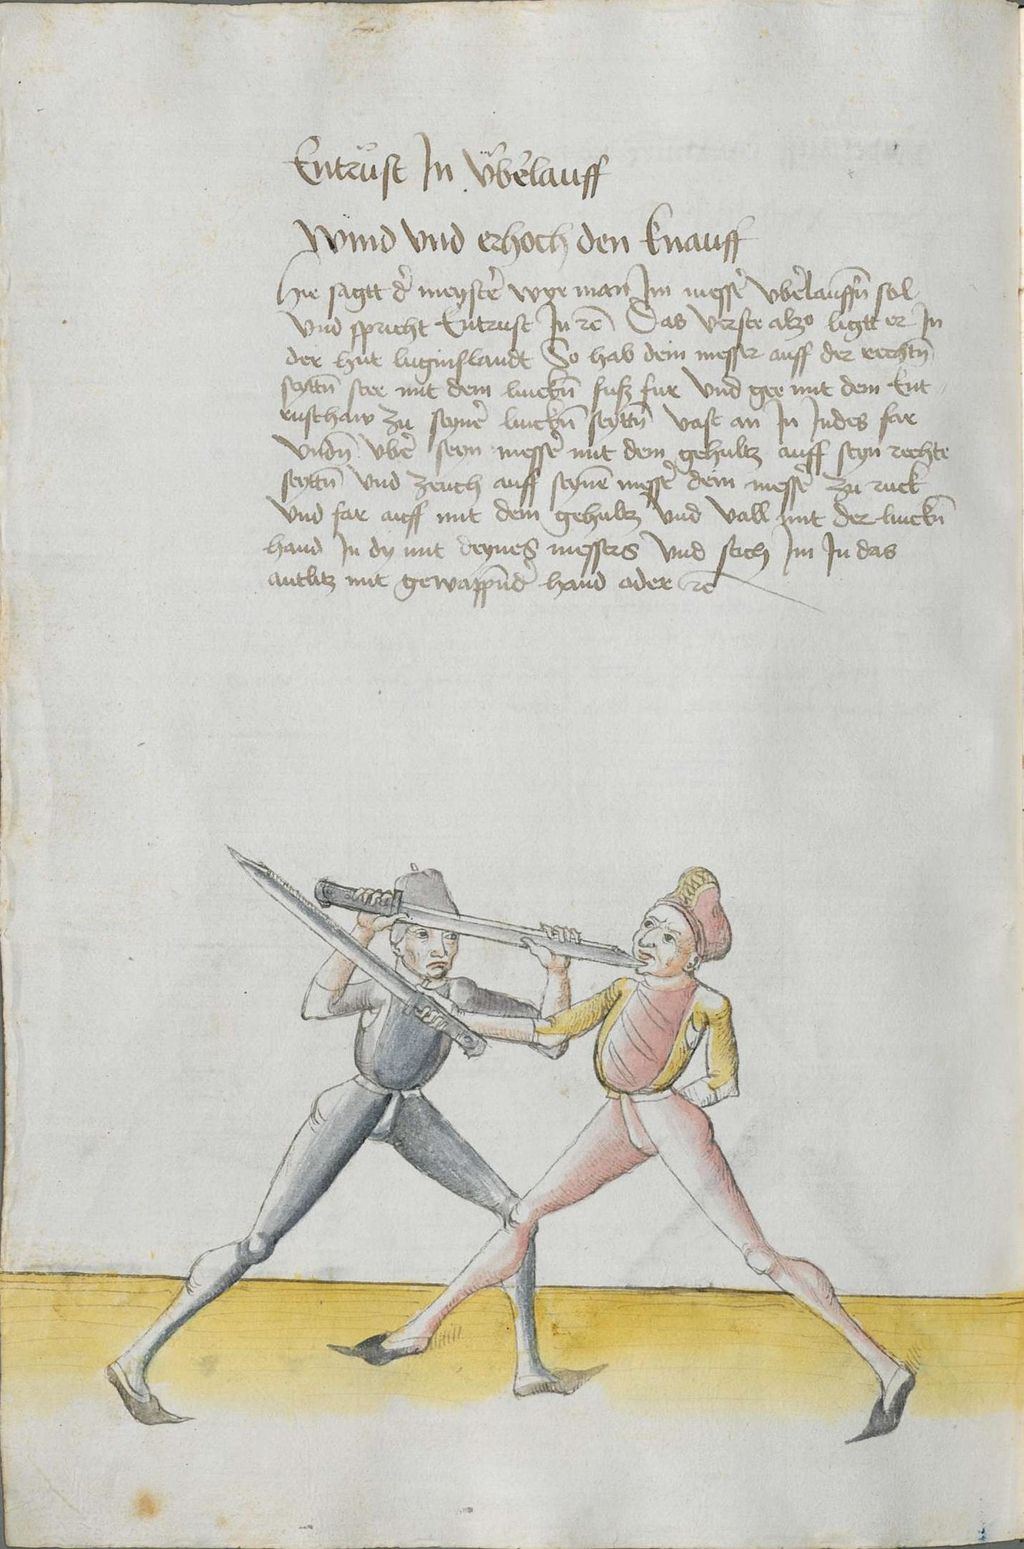 Entrüst In v̈berlauff
Wind vnd erhoch den knauff
Hie sagtt d' meyster wye man Im messer vberlauffn sol
vnd spricht Entrust In rc Das verste also ligtt er In
der hut luginslandt So hab dein messer auff der rechtn
seyttn stee mit dem linckn fusz fur vnd gee mit dem Ent-
rusthaw zu seyner linckn seyttn vast an In Indes far
vndn vber seyn messer mit dem gehultz auff seyn rechte
seyttn vnd zeuch auff seyne messer dein messer zu ruck
vnd far auff mit dem gehultz vnd vall mit der linckn
hand In dy mit deynes messers vnd stich Im In das
antlitz mit gewappnder hand oder rc